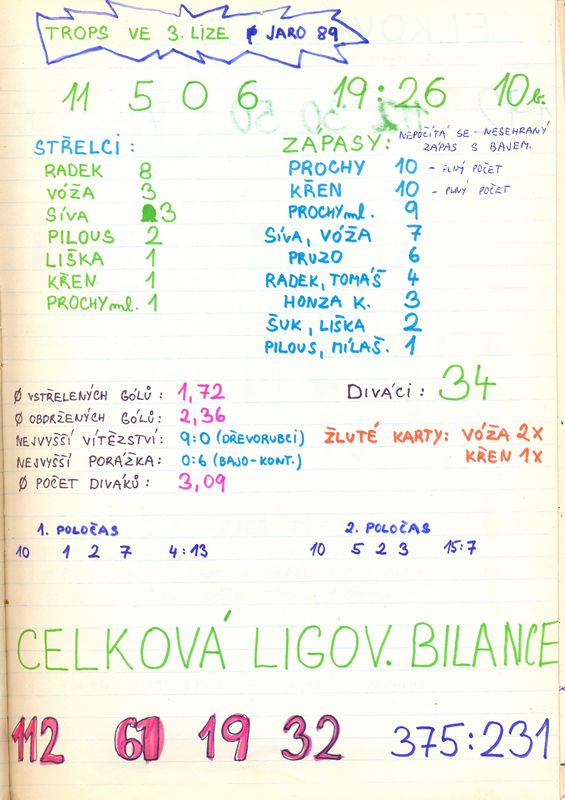 TROPS VE 3. LIZE JARO 89
11 5 0 6 19:26 10 b.
STŘELCI:
RADEK 8
VÓŽA 3
SÍVA 3
PILOUS 2
LIŠKA 1
KŘEN 1
PROCHY ml. 1
ZÁPASY: NEPOČÍTÁ SE NESEHRANÝ
ZÁPAS S BAVEM.
PROCHY 10 - PLNÝ POČET
KŘEN 10 - PLNÝ POČET
PROCHY ml. 9
SÍVA, VÓŽA 7
PRUZO 6
RADEK, TOMÁŠ 4
HONZA K. 3
ŠUK, LIŠKA 2
PILOUS, MILAŠ. 1
Ø VSTŘELENÝCH GÓLŮ: 1,72
Ø OBDRŽENÝCH GÓLŮ: 2,36
NEJVYŠŠÍ VÍTĚZSTVÍ: 9:0 (DŘEVORUBCI)
NEJVYŠŠÍ PORÁŽKA: 0:6 (BAJO-KONT.)
Ø POČET DIVÁKŮ: 3,09
DIVÁCI: 34
ŽLUTÉ KARTY: VÓŽA 2X
KŘEN 1X
1. POLOČAS
10 1 2 7 4:13
2. POLOČAS
10 5 2 3 15:7
CELKOVÁ LIGOV. BILANCE
112 61 19 32 375:231